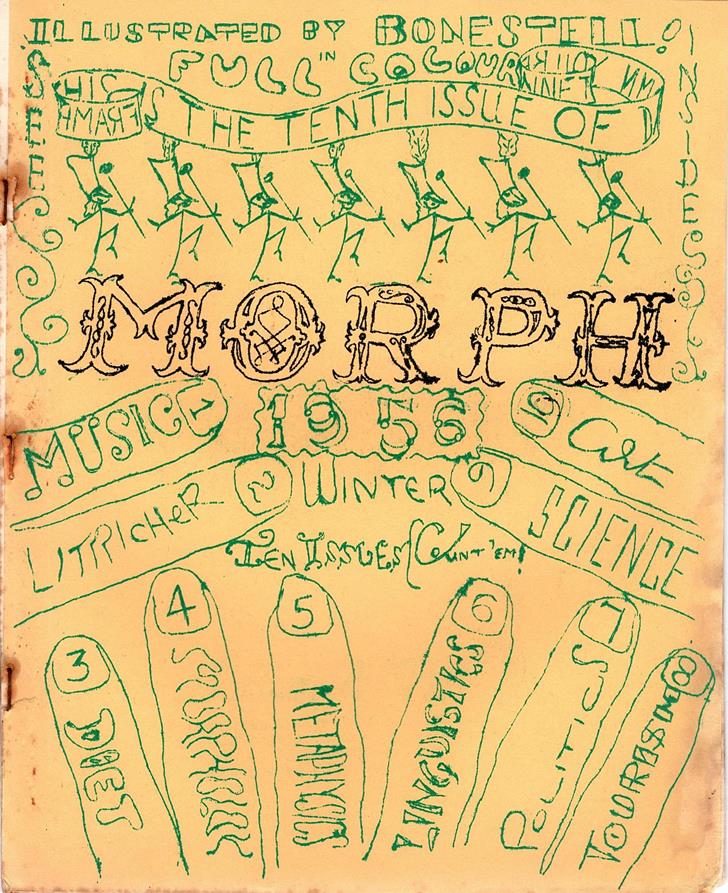 ILLUSTRATED BY BONESTELL!
IN
FULL COLOUR
THIS IS THE TENTH ISSUE OF
INSIDE
MORPH
1956
WINTER
Ten Issues (Count 'em!
1 MUSIC
2 LITRICHER
3 DIET
4
5 METAPHYSICS
6 LINGUISTICS
7 POLITICS
8 TOURISM
9 SCIENCE
10 Art